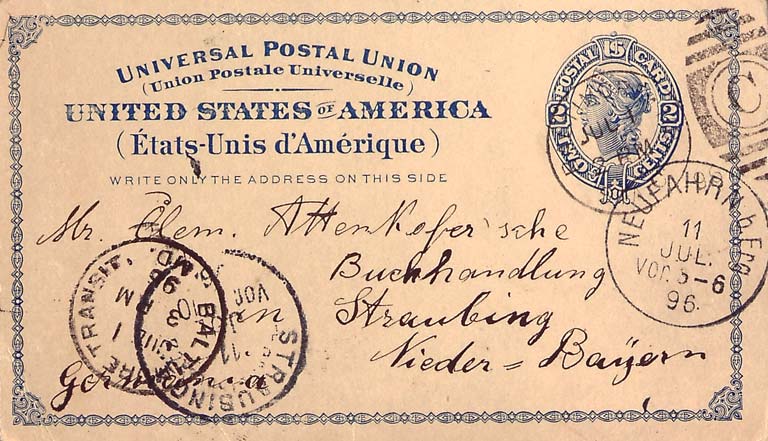 UNIVERSAL POSTAL UNION
(Union Postale Universelle)
UNITED STATES OF AMERICA
(États-Unis d'Amérique)
WRITE ONLY THE ADDRESS ON THIS SIDE
U.S. POSTAL CARD
2 2 CENTS
C
JUL
PM
NEUFAHRN b. Erg.
11
JUL.
VOR. 5-6
96.
Mr. Clem. Attenkofer'sche
Buchhandlung
in
Straubing
Nieder=Bayern
Germania
TRANSIT.
BALTIMORE MD.
JUL 3
1
M
96
STRAUBING
11
VOR